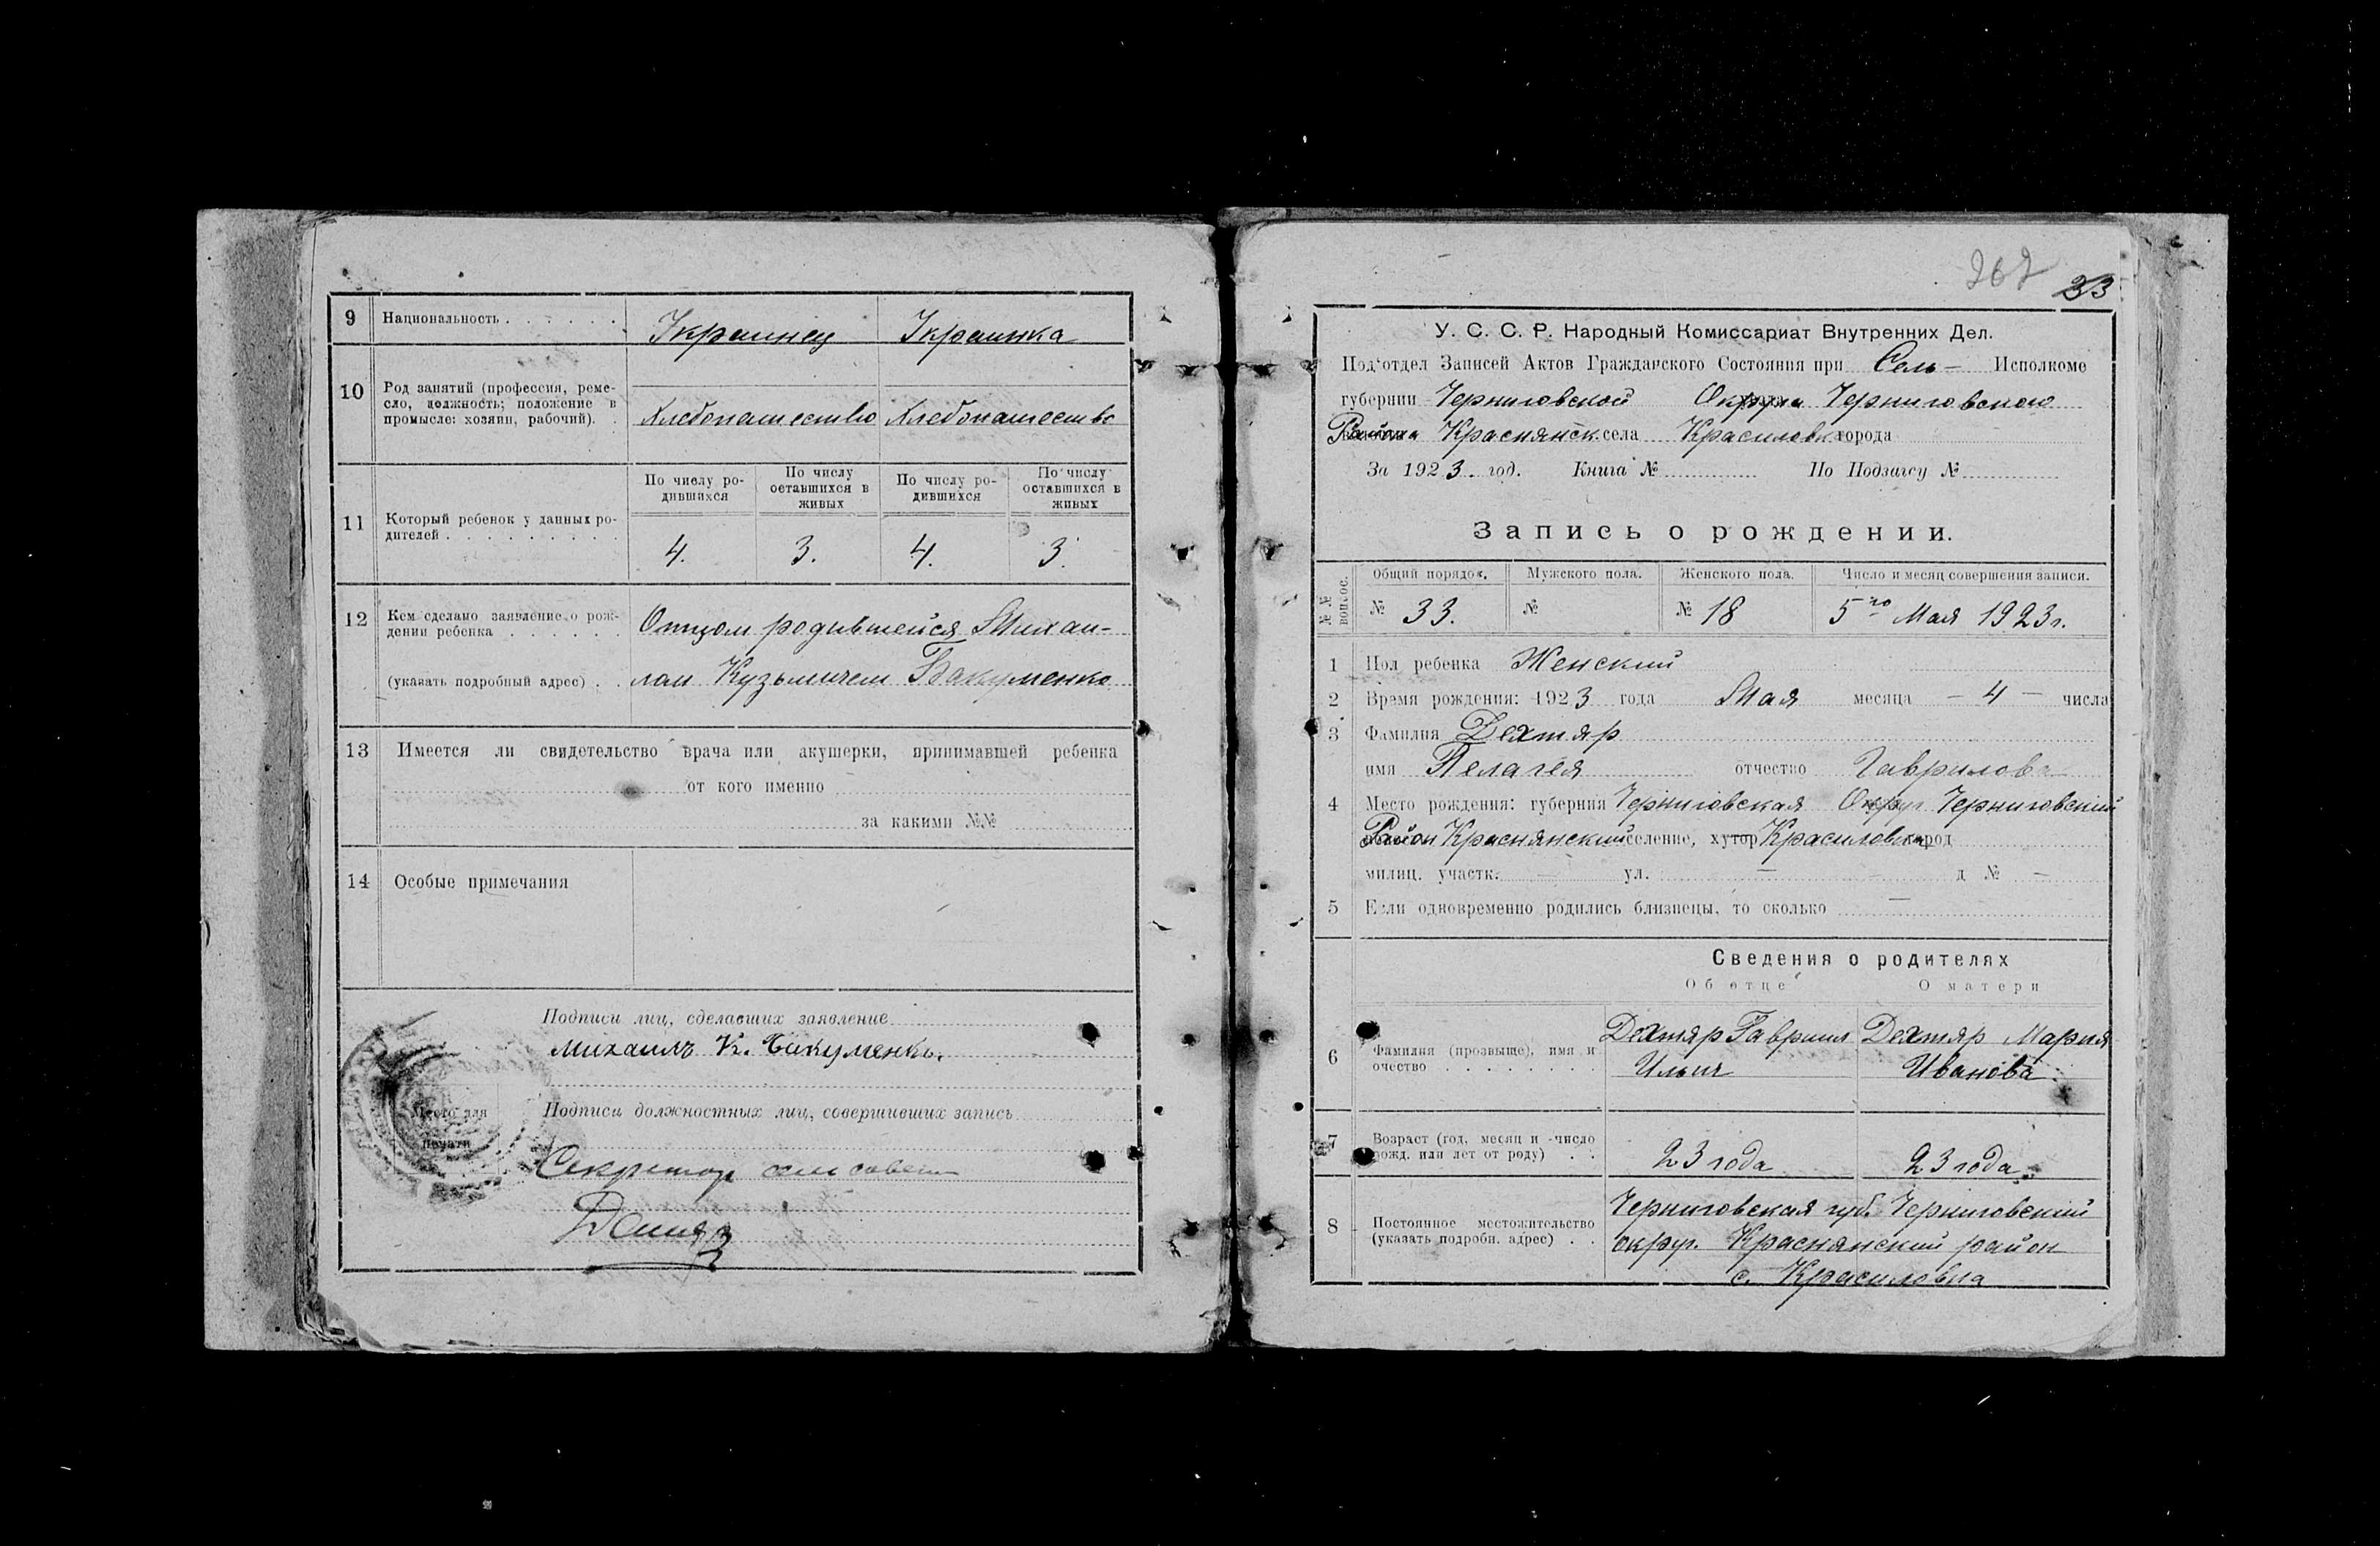 9 Национальность . . . . . . Украинец Украинка
10 Род занятий (профессия, реме-
сло, должность; положение в
промысле: хозяин, рабочий). . Хлебопашество Хлебопашество
11 Который ребенок у данных ро-
дителей . . . . . . . . .
По числу ро-
дившихся
По числу
оставшихся в
живых
По числу ро-
дившихся
По числу
оставшихся в
живых
4. 3. 4. 3.
12 Кем сделано заявление о рож-
дении ребенка . . . . . . Отцом родившейся Михаи-
(указать подробный адрес) . . лом Кузьмичем Бакуменко
13 Имеется ли свидетельство врача или акушерки, принимавшей ребенка
от кого именно
за какими №№
14 Особые примечания
Подписи лиц, сделавших заявление
Михаилъ К. Бакуменко.
Место для
печати
Подписи должностных лиц, совершивших запись
Секретарь
262
33
У. С. С. Р. Народный Комиссариат Внутренних Дел.
Под'отдел Записей Актов Гражданского Состояния при Сель- Исполкоме
губернии Черниговской Округа Черниговского
Района Краснянск. села Красиловка города
За 1923. год. Книга № По Подзагсу №
Запись о рождении.
№№ вопрос.
Общий порядок. Мужского пола. Женского пола. Число и месяц совершения записи.
№ 33. № № 18 5го Мая 1923г.
1 Пол ребенка Женский
2 Время рождения: 1923 года Мая месяца - 4 - числа
3 Фамилия Дехтяр
имя Пелагея отчество Гаврилова
4 Место рождения: губерния Черниговская Округ Черниговский
Район Краснянский селение, хутор Красиловка город
милиц. участк. — ул. — д № —
5 Если одновременно родились близнецы, то сколько —
Сведения о родителях
Об отце О матери
6 Фамилия (прозвыще), имя и
очество . . . . . . . .
Дехтяр Гавриил
Ильич
Дехтяр Мария
Иванова
7 Возраст (год, месяц и число
рожд. или лет от роду) . . 23 года 23 года
8 Постоянное местожительство
(указать подробн. адрес) . .
Черниговская губ. Черниговский
округ. Краснянский район
с. Красиловка